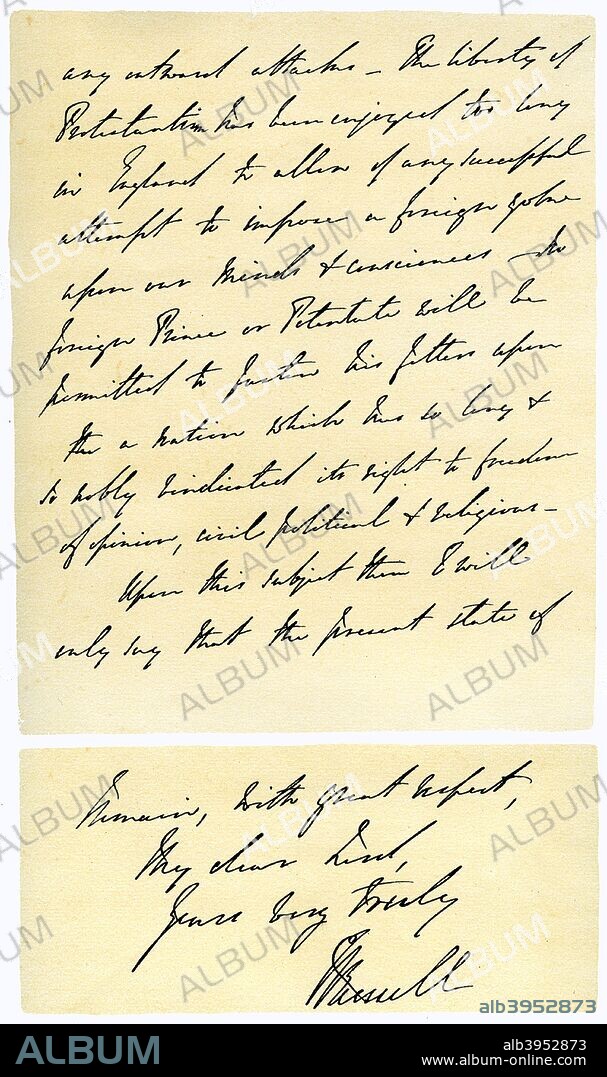 any outward attacks – The liberty of
Protestantism has been enjoyed too long
in England to allow of any successful
attempt to impose a foreign yoke
upon our minds & consciences – No
foreign Prince or Potentate will be
permitted to fasten his fetters upon
the a nation which has so long &
so nobly vindicated its right to freedom
of opinion, civil political & religious –
Upon this subject then I will
only say that the present state of
Remain, with great respect,
My dear Lord,
Yours very truly
J Russell
alb3952873
ALBUM
alb3952873
www.album-online.com